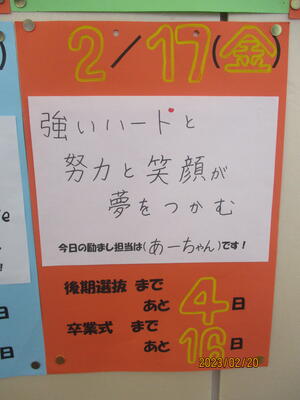 2/17(金)
強いハートと
努力と笑顔が
夢をつかむ
今日の励まし担当は(あーちゃん)です!
後期選抜 まで
あと 4 日
卒業式 まで
あと 16 日
2023/02/20